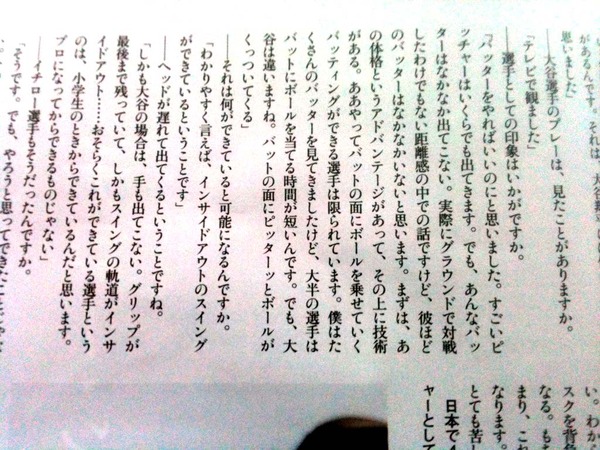 があるんです。それは、大谷
思いました」
――大谷選手のプレーは、見たことがありますか。
「テレビで観ました」
――選手としての印象はいかがですか。
「バッターをやればいいのにと思いました。すごいピ
ッチャーはいくらでも出てきます。でも、あんなバッ
ターはなかなか出てこない。実際にグラウンドで対戦
したわけでもない距離感の中での話ですけど、彼ほど
のバッターはなかなかいないと思います。まずは、あ
の体格というアドバンテージがあって、その上に技術
がある。ああやってバットの面にボールを乗せていく
バッティングができる選手は限られています。僕はた
くさんのバッターを見てきましたけど、大半の選手は
バットにボールを当てる時間が短いんです。でも、大
谷は違いますね。バットの面にピッターッとボールが
くっついてくる」
――それは何ができていると可能になるんですか。
「わかりやすく言えば、インサイドアウトのスイング
ができているということです」
――ヘッドが遅れて出てくるということですね。
「しかも大谷の場合は、手も出てこない。グリップが
最後まで残っていて、しかもスイングの軌道がインサ
イドアウト……おそらくこれができている選手という
のは、小学生のときからできているんだと思います。
プロになってからできるものじゃない」
――イチロー選手もそうだったんですか。
「そうです。でも、やろうと思ってできたことじゃ
い。わから
スクを背負
なる。もち
まり、これ
なります。
とても苦し
日本で4
ャーとして